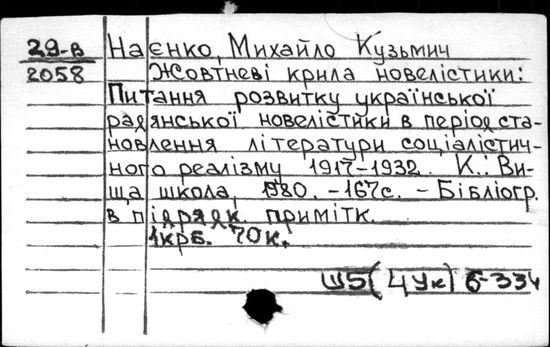 29-в Наєнко, Михайло Кузьмич
2058 Жовтневі крила новелістики:
Питання розвитку української
радянської новелістики в період ста-
новлення літератури соціалістич-
ного реалізму 1917-1932. К.: Ви-
ща школа, 1980. -167с. - Бібліогр.
в підряд к. примітк.
1крб. 70к.
Ш5(4Ук)6-334